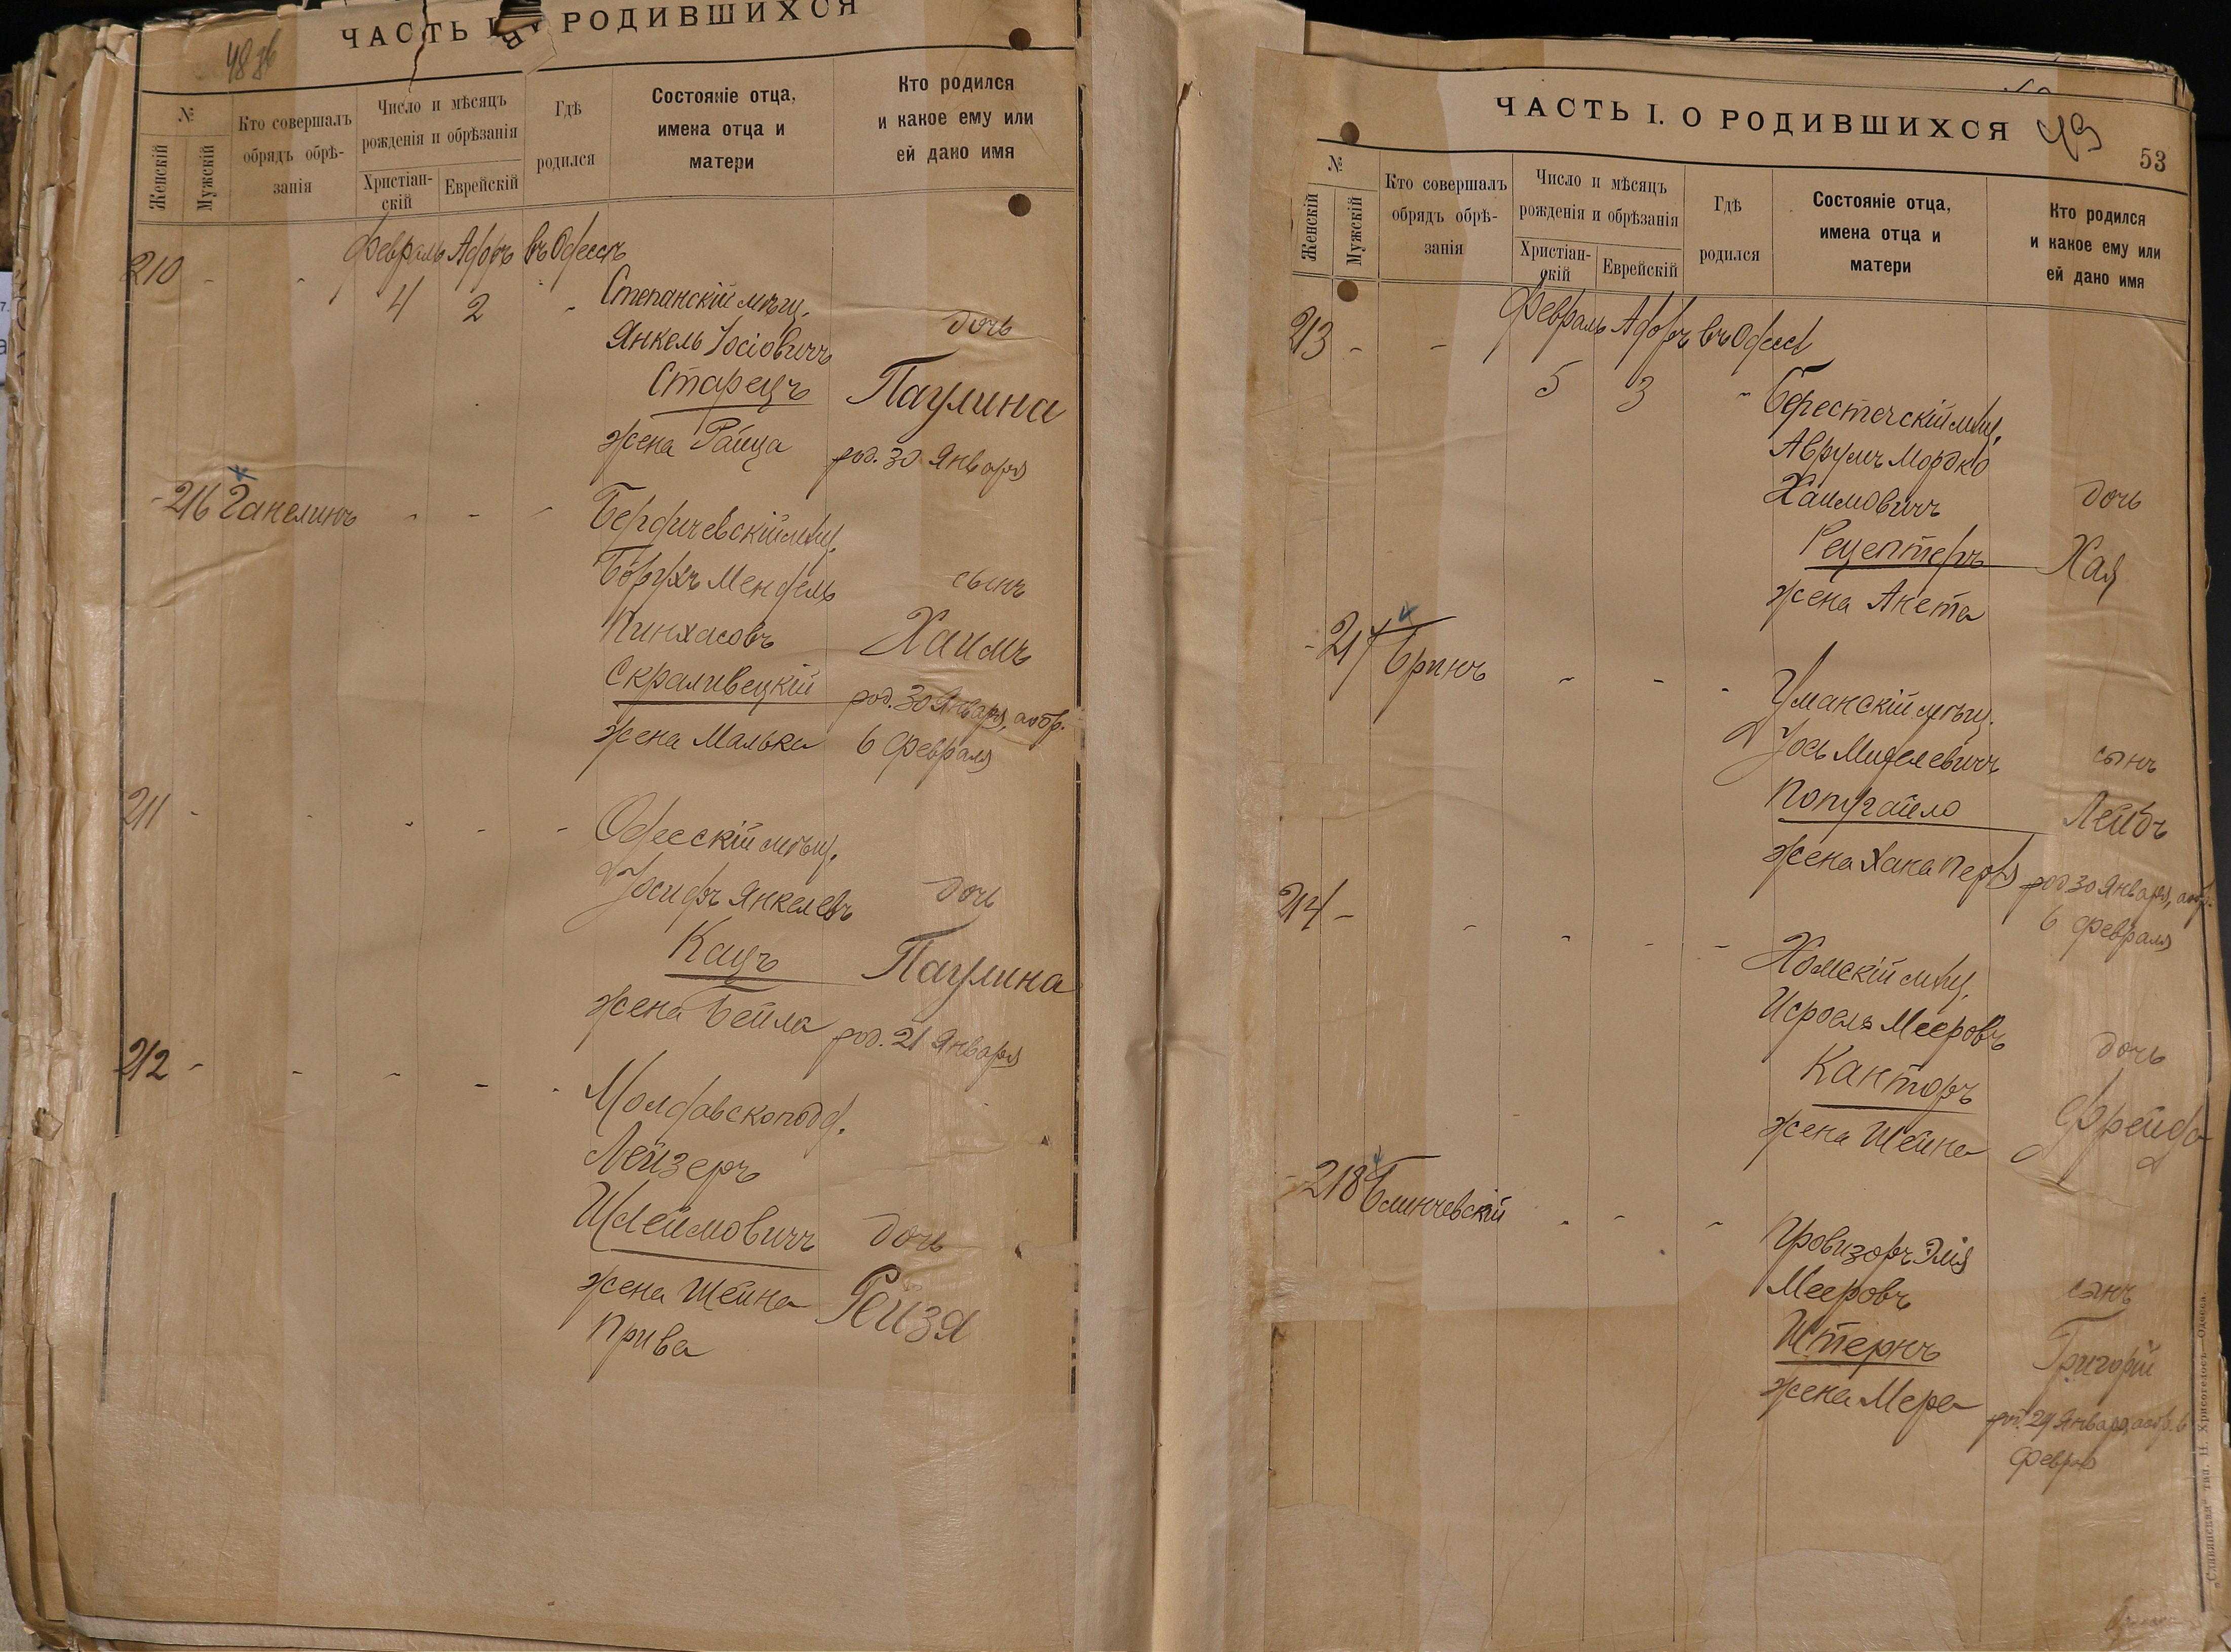 48 зв
ЧАСТЬ I. О РОДИВШИХСЯ
№
Женскій
Мужскій
Кто совершалъ
обрядъ обрѣ-
занія
Число и мѣсяцъ
рожденія и обрѣзанія
Христіан-
скій
Еврейскій
Гдѣ
родился
Состояніе отца,
имена отца и
матери
Кто родился
и какое ему или
ей дано имя
Февраль Адоръ въ Одессѣ
210 - - 4 2 - Степанскій мѣщ.
Янкель Іосіовичъ дочь
Старецъ Паулина
жена Раица род. 30 Января
- 216 Ганелинъ - - - Бердичевскій мѣщ.
Борухъ Мендель сынъ
Пинхасовъ Хаимъ
Скраливецкій род. 30 Января, а обр.
жена Малька 6 Февраля
211 - - - - - Одесскій мѣщ.
Іосифъ Янкелевъ дочь
Кацъ Паулина
жена Бейла род. 21 Января
212 - - - - - Молдавскоподд.
Лейзеръ
Шлеймовичъ дочь
жена Шейна Рейзя
Прива
49
ЧАСТЬ I. О РОДИВШИХСЯ
53
№
Женскій
Мужскій
Кто совершалъ
обрядъ обрѣ-
занія
Число и мѣсяцъ
рожденія и обрѣзанія
Христіан-
скій
Еврейскій
Гдѣ
родился
Состояніе отца,
имена отца и
матери
Кто родился
и какое ему или
ей дано имя
Февраль Адоръ въ Одессѣ
213 - - 5 3 - Берестечскій мѣщ.
Аврумъ Мордко
Хаимовичъ дочь
Рецептеръ Хая
жена Анета
- 217 Бринъ - - - Уманскій мѣщ.
Іось Миделевичъ сынъ
Попугайло Лейбъ
жена Хана Перля род. 30 Января, а обр.
6 Февраля
214 - - - - - Хомскій мѣщ.
Исроель Мееровъ
Канторъ дочь
жена Шейна Фрейда
- 218 Блинчевскій - - - Провизоръ Элія
Мееровъ сынъ
Штернъ Григорій
жена Мера род. 29 Января, а обр. 6
Февраля
„Славянская“ тип. Н. Хрисогелосъ—Одесса.